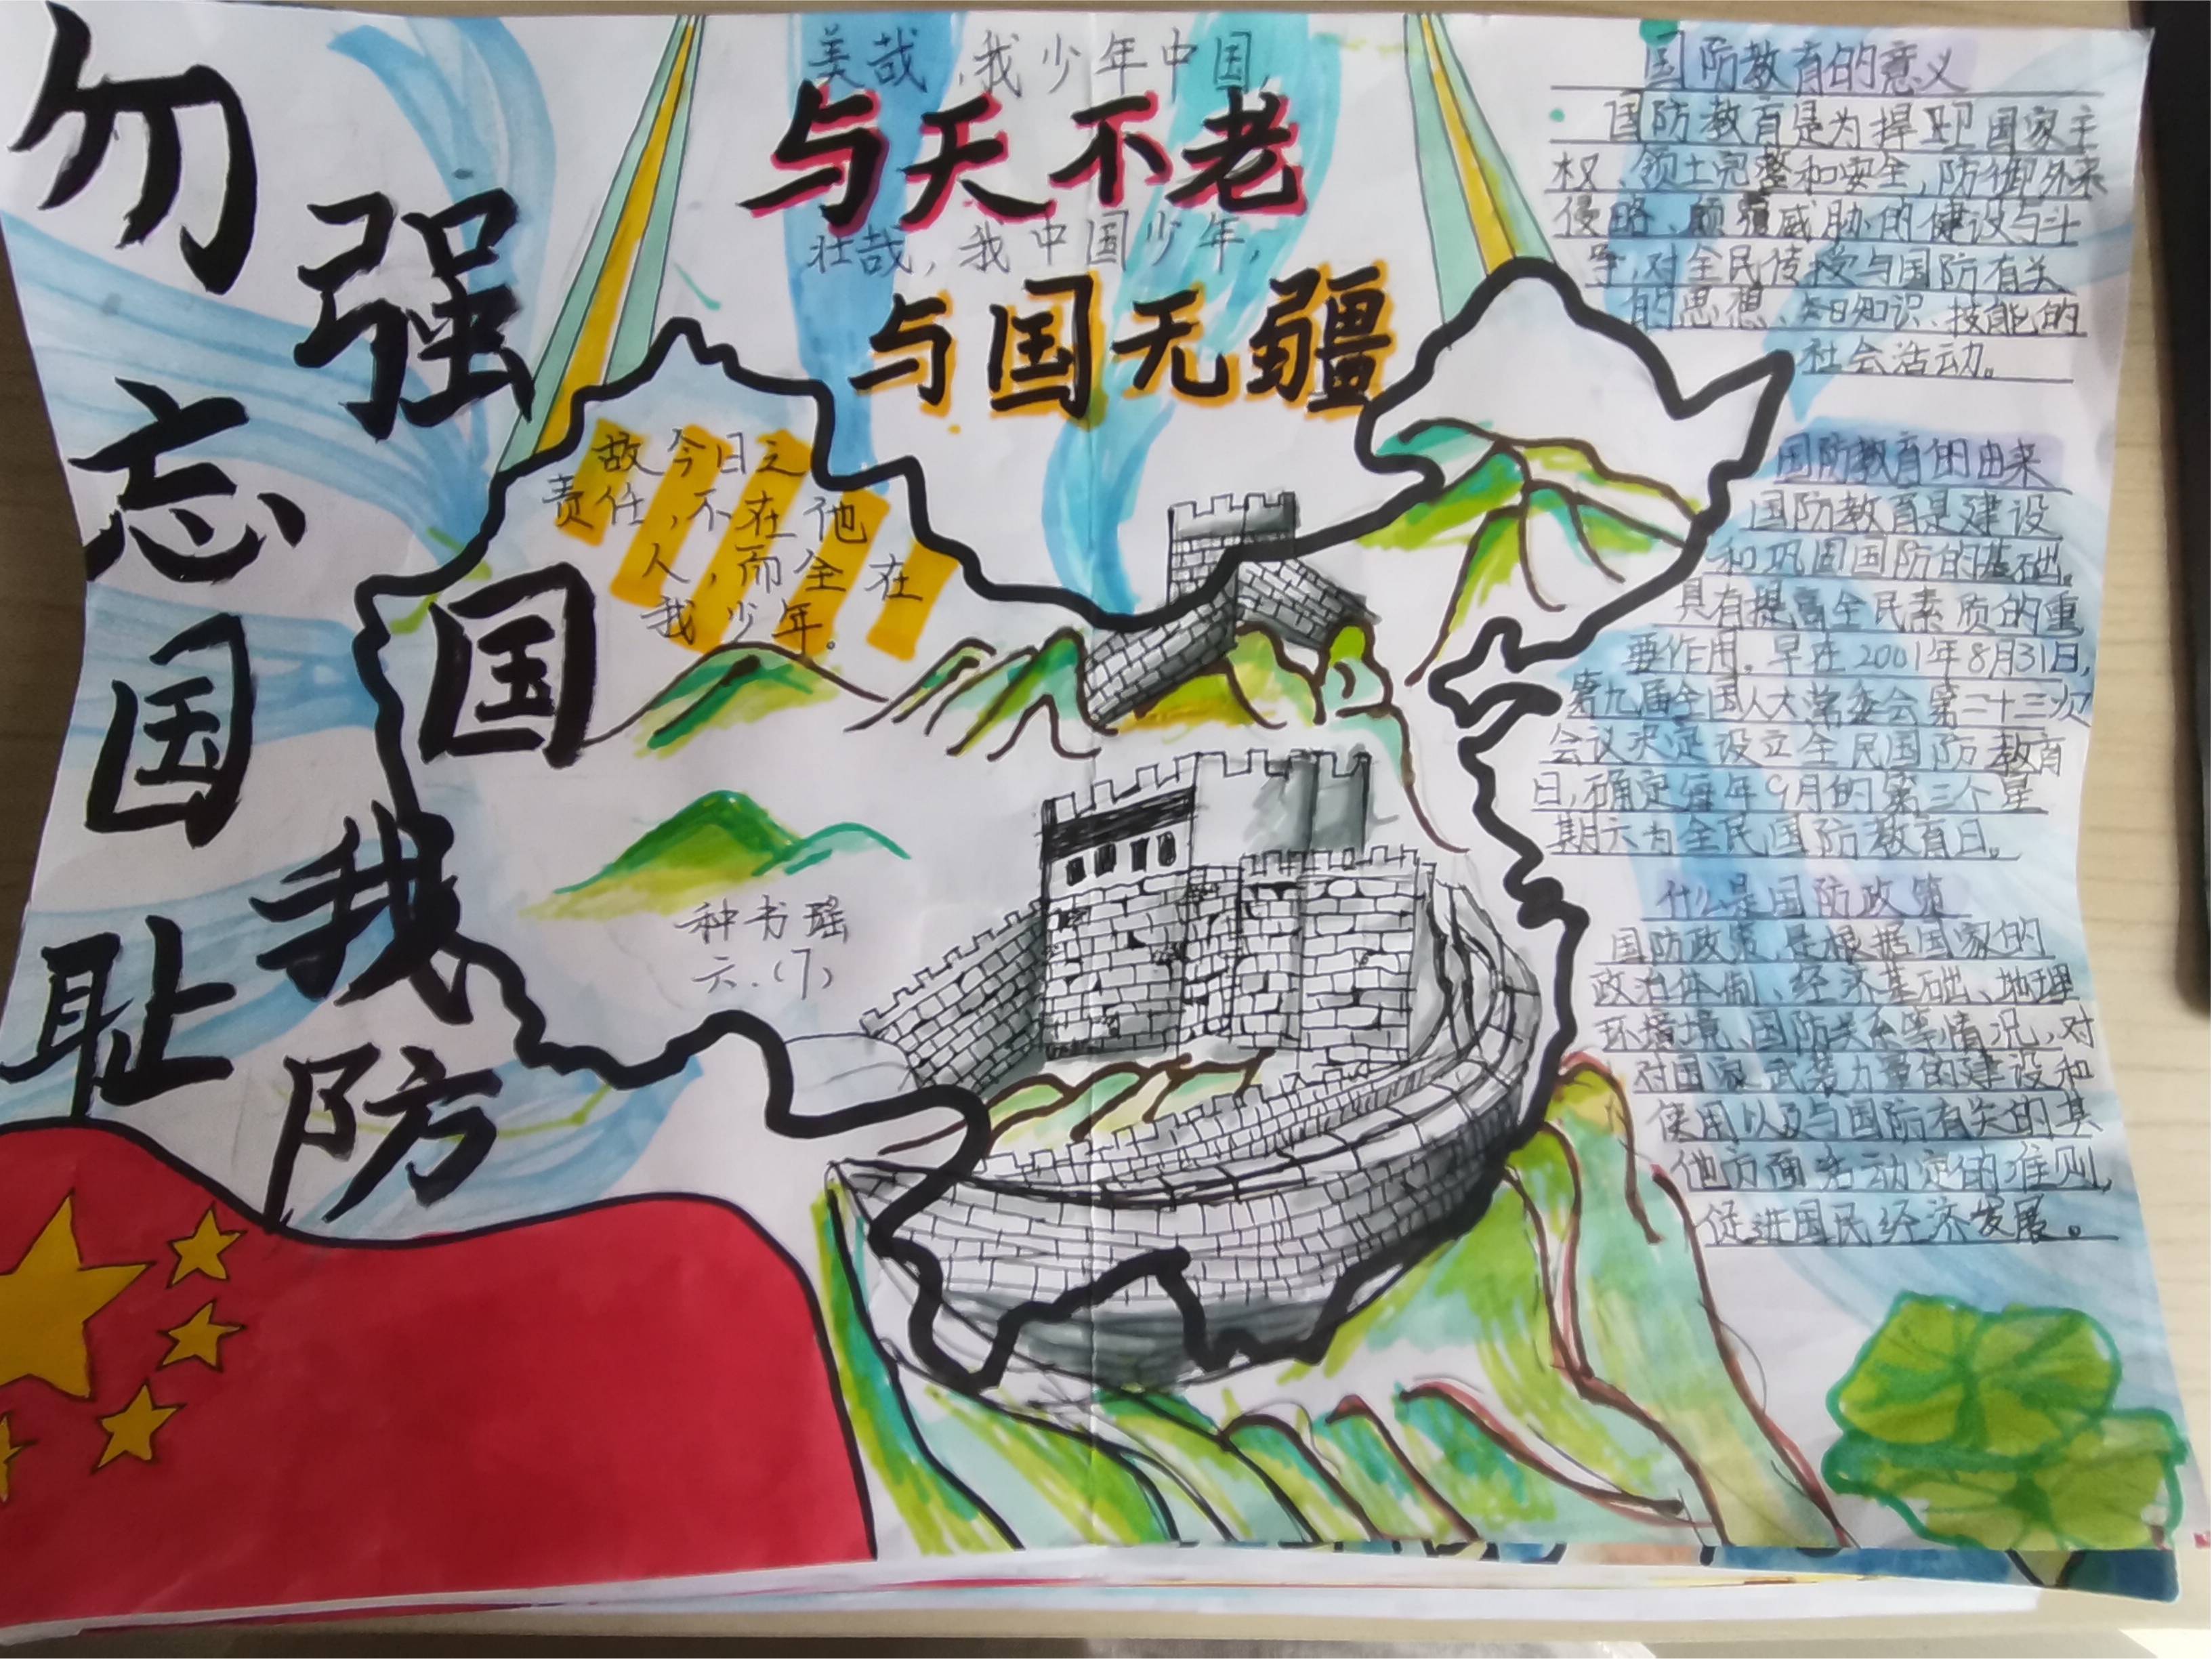 勿忘国耻
强国我防
美哉,我少年中国,
与天不老
壮哉,我中国少年,
与国无疆
故今日之
责任,不在他
人,而全在
我少年。
种书瑶
六.(7)
国防教育的意义
国防教育是为捍卫国家主
权、领土完整和安全,防御外来
侵略、颠覆威胁的健设与斗
争,对全民传授与国防有关
的思想、知识、技能的
社会活动。
国防教育的由来
国防教育是建设
和巩固国防的基础。
具有提高全民素质的重
要作用。早在2001年8月31日,
第九届全国人大常委会第二十三次
会议决定设立全民国防教育
日,确定每年9月的第三个星
期六为全民国防教育日。
什么是国防政策
国防政策是根据国家的
政治体制、经济基础、地理
环境、国防关系等情况,对
对国家武装力量的建设和
使用以及与国防有关的其
他方面活动定的准则,
促进国民经济发展。